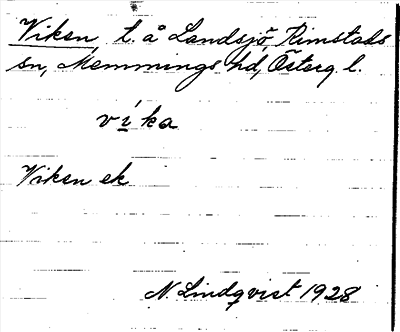 Viken, t. å Landsjö, Rimstads
sn, Memmings hd, Österg. l.
vi̱ka
Viken ek
N. Lindqvist 1928